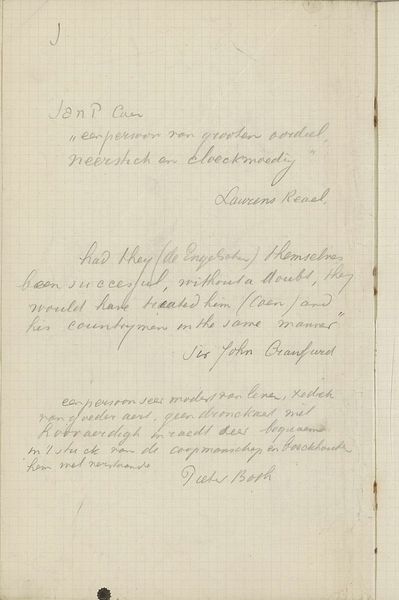 J
Jan P Coen
„een persoon van grooten oordiel,
neerstich en cloeckmoedig"
Laurens Reael.
had they (de Engelschen) themselves
been succesful, without a doubt, they
would have treated him (Coen) and
his countrymen in the same manner"
Sir John Craufurd
een persoon seer modest van leven, zedich
van goeden aert, geen dronckaet niet
hoovaerdigh in raedt seer bequaem
in 't stuck van de coopmanschap en boeckhouden
hem wel verstaende
Pieter Both